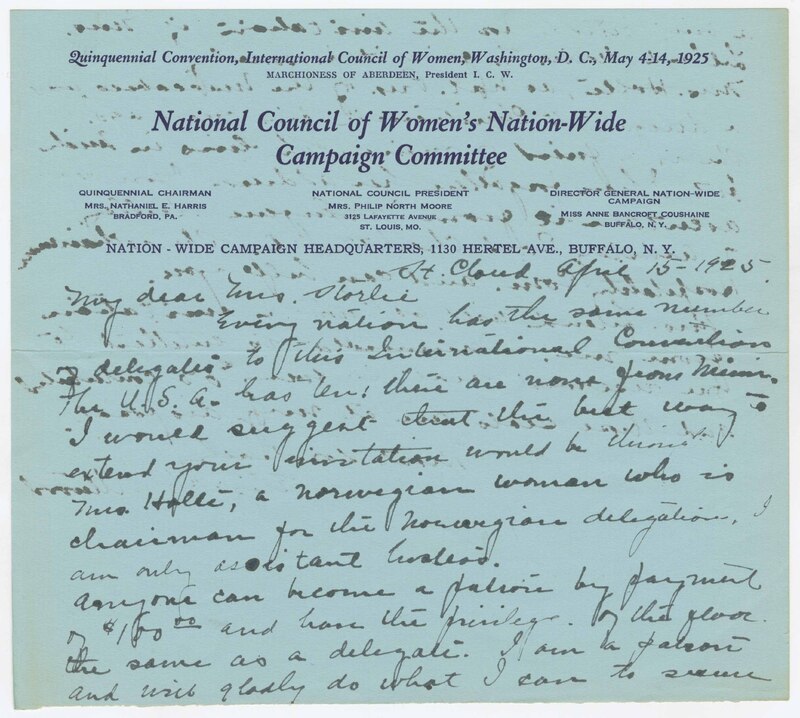 Quinquennial Convention, International Council of Women, Washington, D. C., May 4-14, 1925
MARCHIONESS OF ABERDEEN, President I. C. W.
National Council of Women's Nation-Wide
Campaign Committee
QUINQUENNIAL CHAIRMAN
MRS. NATHANIEL E. HARRIS
BRADFORD, PA.
NATIONAL COUNCIL PRESIDENT
MRS. PHILIP NORTH MOORE
3125 LAFAYETTE AVENUE
ST. LOUIS, MO.
DIRECTOR GENERAL NATION-WIDE
CAMPAIGN
MISS ANNE BANCROFT COUSHAINE
BUFFALO, N. Y.
NATION-WIDE CAMPAIGN HEADQUARTERS, 1130 HERTEL AVE., BUFFALO, N. Y.
St. Cloud April 15-1925.
My dear Mrs. Storlie
Every nation has the same number
of delegates to this International Convention
The U.S.A. has ten: there are none from Minn.
I would suggest that the best way to
extend your invitation would be through
Mrs. Holte, a Norwegian woman who is
chairman for the Norwegian delegation, I
am only assistant hostess.
Anyone can become a patron by payment
of $100 00 and have the privilege of the floor
the same as a delegate. I am a patron
and will gladly do what I can to secure